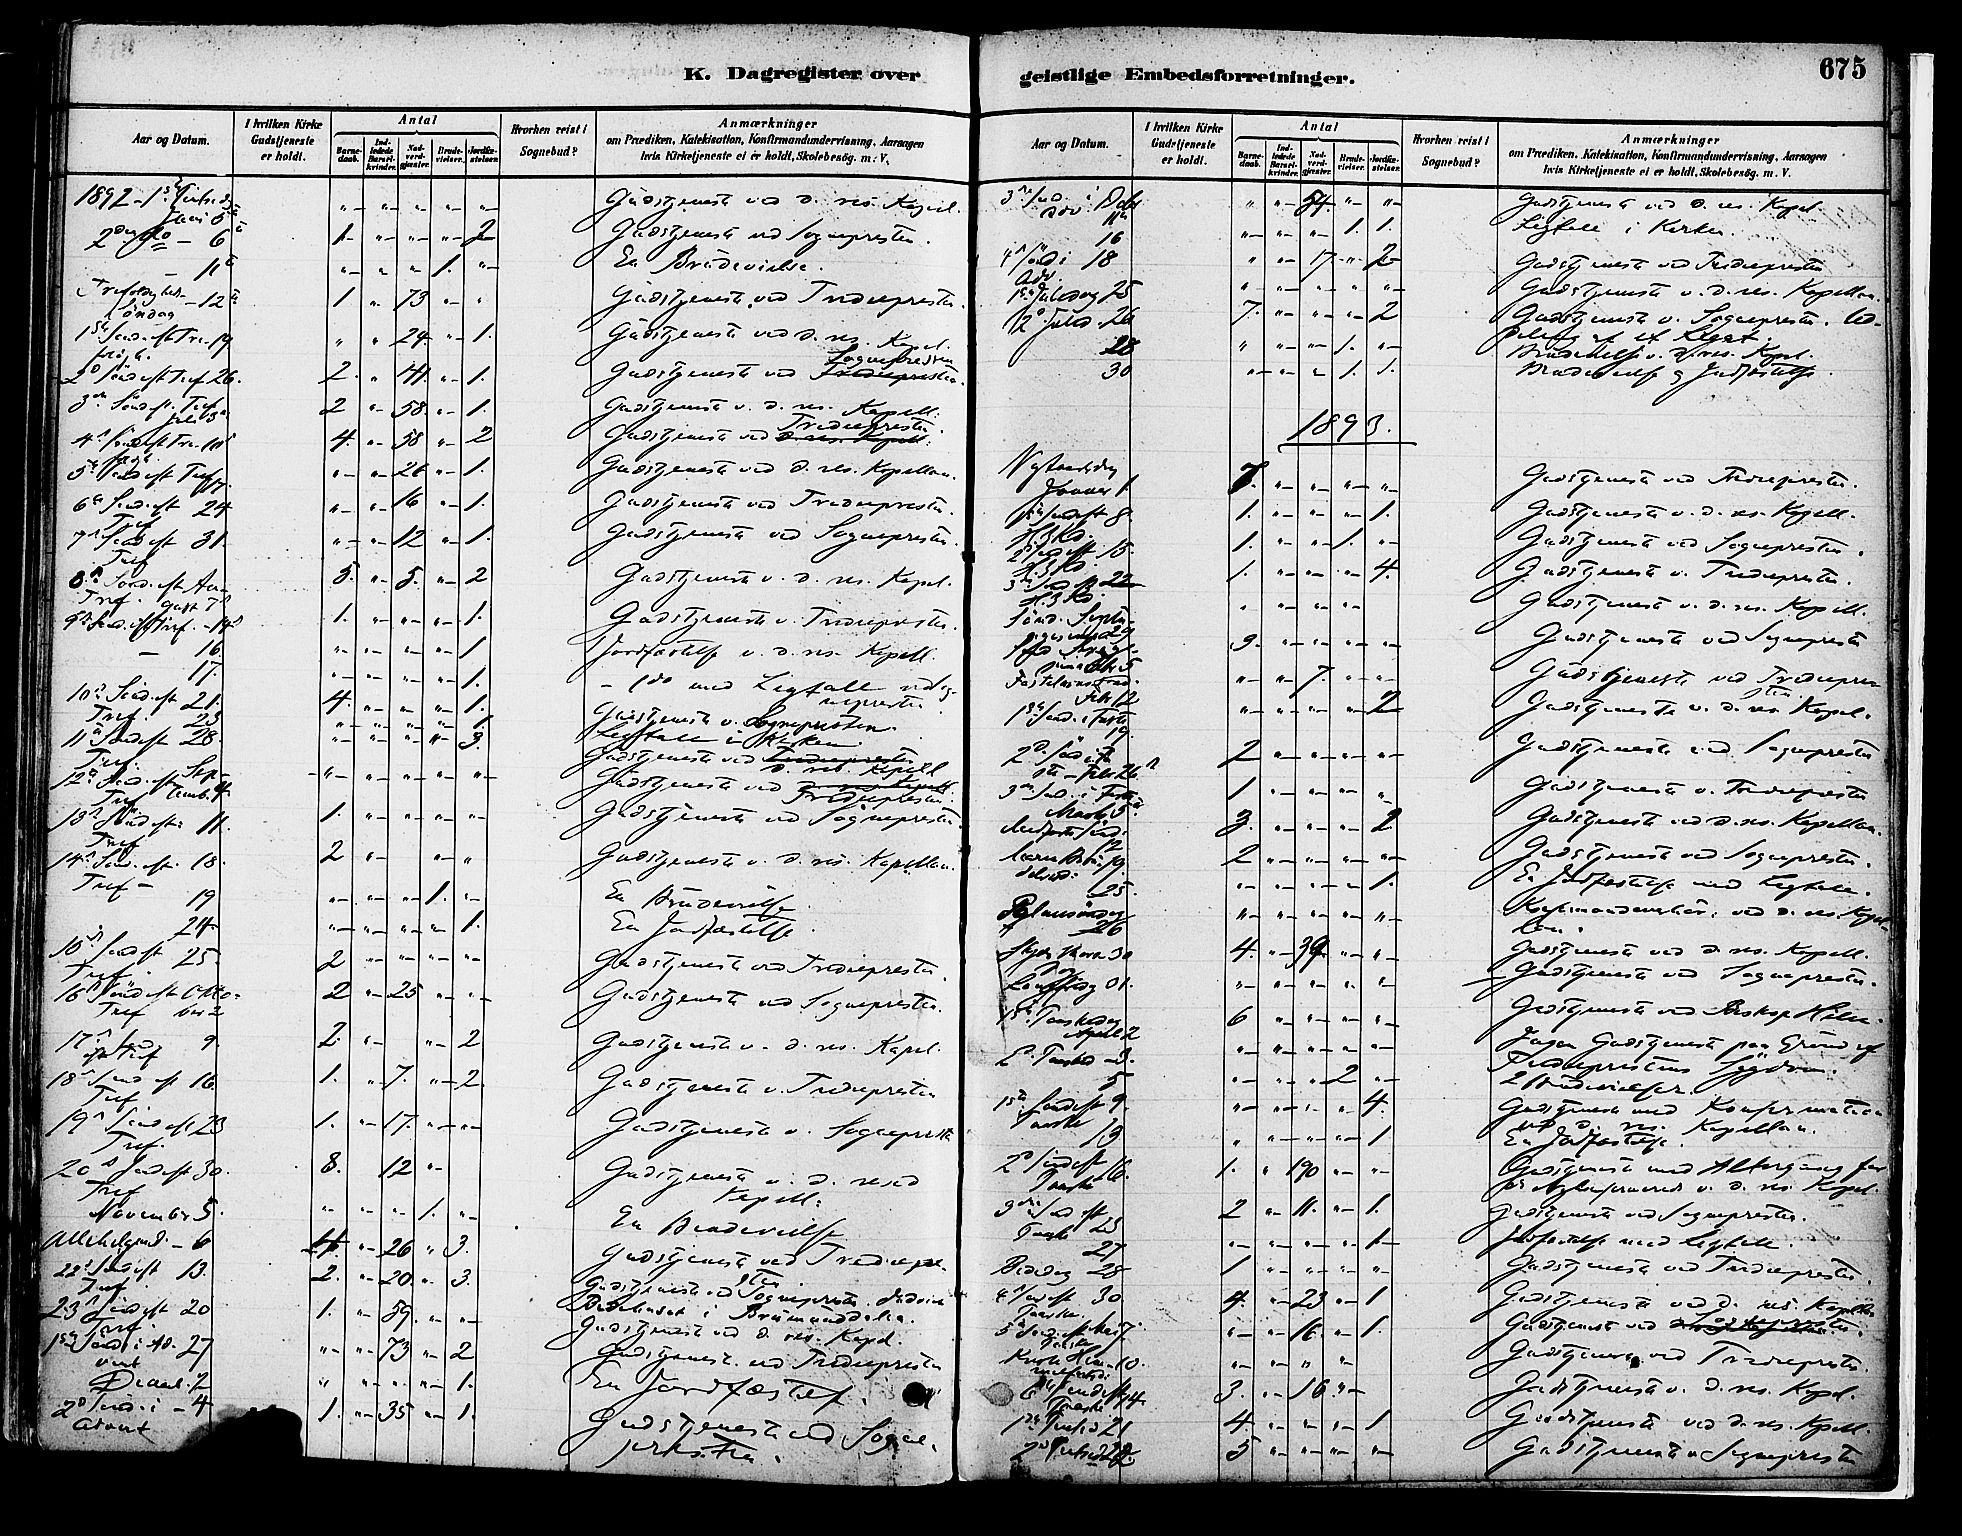 K. Dagregister over geistlige Embedsforretninger. 675
Aar og Datum. I hvilken Kirke Gudstjeneste er holdt. Antal Barnedaab. Indledede Barselkvinder. Nadverdgjæster. Brudevielser. Jordfæstelser. Hvorhen reist i Sognebud? Anmærkninger om Prædiken, Katekisation, Konfirmandundervisning, Aarsagen hvis Kirketjeneste ei er holdt, Skolebesög. m: V.
1892 - 1ste " " " " " Gudstjeneste ved d. res. Kapel.
2den Do - 6te 1 " " " 2 Gudstjeneste ved Sognepresten.
- 11te " " " 1. " En Brudevielse.
Trefoldigheds Söndag - 12te 1 " 73 " " Gudstjeneste ved Trediepresten.
19 " " 24 " 1. Gudstjeneste ved d. res. Kapel.
2d Sönd. eft Tref 26. 2. " 41. " 1. Gudstjeneste ved Sognepresten
3die Sönd. eft. Tref Juli 3 2 " 58. " 1. Gudstjeneste v. d. res. Kapell.
4. " 58 " 2 Gudstjeneste ved Trediepresten.
" " 26 " 1. Gudstjeneste ved d. res. Kapellan.
6te Sönd eft Tref 24 " " 16 " 1. Gudstjeneste ved Trediepresten.
7d Sönd eft Tref 31. " " 12 " 1. Gudstjeneste ved Sognepresten.
8d Sönd. eft Tref. August 7d 5. " 5. " 2 Gudstjeneste v. d. res. Kapel.
9d Sönd. eft Tref. - 14d 1. " " " 1. Gudstjeneste v. Trediepresten.
- 16. " " " " 1 Jordfæstelse v. d. res. Kapell.
17. " " " " 1. - Do med Ligtale ved Sognepresten.
10d Sönd. eft Tref. 21. 4. " " " 1. Gudstjeneste v. Sognepresten.
23 " " " " 1. Ligtale i Kirken.
11te Sönd eft Tref. 28 " " " " 3. Gudstjeneste ved d. res. Kapell
12te Sönd. eft Tref September 4 " " " " " Gudstjeneste ved Trediepresten.
13d Sönd eft Tref 11. 1. " " " " Gudstjeneste ved Sognepresten
14d Sönd. eft Tref - 18. 2 " " " Gudstjeneste v. d. res. Kapellan.
19 " " " 1. " En Brudevielse.
24. " " " " 1. En Jordfæstelse.
15d Sönd eft Tref. 25. 2 " " " " Gudstjeneste ved Trediepresten.
16d Sönd eft Tref Oktober 2 2 " 25 " " Gudstjeneste ved Sognepresten.
17d Sönd eft Tref 9. 2. " " 2 Gudstjeneste v. d. res. Kapel.
18d Sönd eft Tref 16. 1. " 7. " 2. Gudstjeneste v. Trediepresten
19d Sönd eft Tref. 23 1. " 17. " " Gudstjeneste v. Sognepresten
20d Sönd eft Tref 30. 8. 12 " Gudstjeneste v. d. resid Kapell.
November 5. " " " 1. " En Brudevielse
Allehelgend. - 6 4. " 26 " 3. Gudstjeneste ved Trediepresten.
22d Sönd eft Tref 13. 2. " 20 " 3. Gudstjeneste ved Sognepresten. Bedehuset i Brumunddalen.
23d Sönd eft Tref. 20 1. " 59. " " Gudstjeneste ved d. res. Kapel.
1ste Sönd i Advent 27 " " 73 " 2 Gudstjeneste ved Trediepresten
2 " " " " 1. En Jordfæstelse.
2d Sönd. i Advent - 4 1. " 35 " 1. Gudstjeneste ved Sognepresten.
Aar og Datum. I hvilken Kirke Gudstjeneste er holdt. Antal Barnedaab. Indledede Barselkvinder. Nadverdgjæster. Brudevielser. Jordfæstelser. Hvorhen reist i Sognebud? Anmærkninger om Prædiken, Katekisation, Konfirmandundervisning, Aarsagen hvis Kirketjeneste ei er holdt, Skolebesög. m. V.
3die Sönd. i Adv. 11te " " 54. " " Gudstjeneste ved d. res. Kapel.
16 " " " 1. 1. Ligtale i Kirken.
4d Sönd i Adv 18 " " 17. " 2 Gudstjeneste ved Trediepresten
1ste Juledag 25 " " " " " Gudstjeneste v. d. res. Kapellan.
2d Juled. 26 7. " " " 2 Gudstjeneste v. Sognepresten. Uddeling af et Legat.
28 " " " 1. " Brudevielse v. d. res. Kapel.
30 " " " 1. 1. Brudevielse og Jordfæstelse
1893.
Nytaarsdag Januar 1. 7. " " " " Gudstjeneste ved Trediepresten.
8. 1. " " " 1. Gudstjeneste v. d. res. Kapell.
15. 1. " " 1. " Gudstjeneste ved Sognepresten.
22 1. " " " 4. Gudstjeneste v. Trediepresten.
29 " " " " Gudstjeneste v. d. res. Kapell.
5 3. " " " " Gudstjeneste ved Sognepresten
Fastelavnssönd. Febr 12 " " 7. " " Gudstjeneste ved Trediepresten.
1ste Sönd. i Faste 19 " " " " 2 Gudstjeneste v. d. res. Kapel.
2d Sönd i Faste - Febr 26d 2 " " " " Gudstjeneste ved Sognepresten
3die Sönd. i Faste Marts 5te 1 " " " " Gudstjeneste v. Trediepresten
Midfaste Sönd. 12 3. " " " 2 Gudstjeneste ved d. res. Kapellan.
19. 2 " " " " Gudstjeneste ved Sognepresten.
25. " " " " 1. En Jordfæstelse med Ligtale.
Palmesöndag 26 " " " " " Konfirmandoverhör. ved d. res. Kapellan.
Skjærthorsdag 30 4. " 39. " " Gudstjeneste ved d. res. Kapell.
Langfredag 31. " " " " " Gudstjeneste ved Sognepresten.
1ste Paaskedag April 2 6 " " " " Gudstjeneste ved Biskop Hille.
2d Paasked - 3. " " " " " Ingen Gudstjeneste paa Grund af Trediepresten Sygdom.
5 " " " 2 " 2 Brudevielser.
1ste Sönd eft Paaske 9. " " " " 4. Gudstjeneste med Konfirmation ved d. res. Kapellan.
13 " " " " 1 En Jordfæstelse.
2d Sönd eft Paaske 16. 1. " 190 " " Gudstjeneste med Altergang for de Nykonfirmerede v. d. res. Kapel.
3die Sönd eft Paaske 23 2 " 11. " 1. Gudstjeneste ved Sognepresten.
27 " " " " 1 Jordfæstelse med Ligtale.
Bededag 28 1 " " " " Gudstjeneste ved Trediepresten.
4d Sönd eft Paaske 30 4. " 23 " 1 Gudstjeneste ved d. res. Kapellan
5te Sönd eft Paaske Mai 7. " " 16. " 1. Gudstjeneste ved
10. " " " " Gudstjeneste ved Trediepresten.
6te Sönd eft Paaske 14. 3. " 16 " Gudstjeneste v. d. res. Kapel.
1ste Pintsed 21 4. " " " 1 Gudstjeneste ved d. res. Kapell.
2d Pintsedag 22 5 " " " " Gudstjeneste v Sognepresten